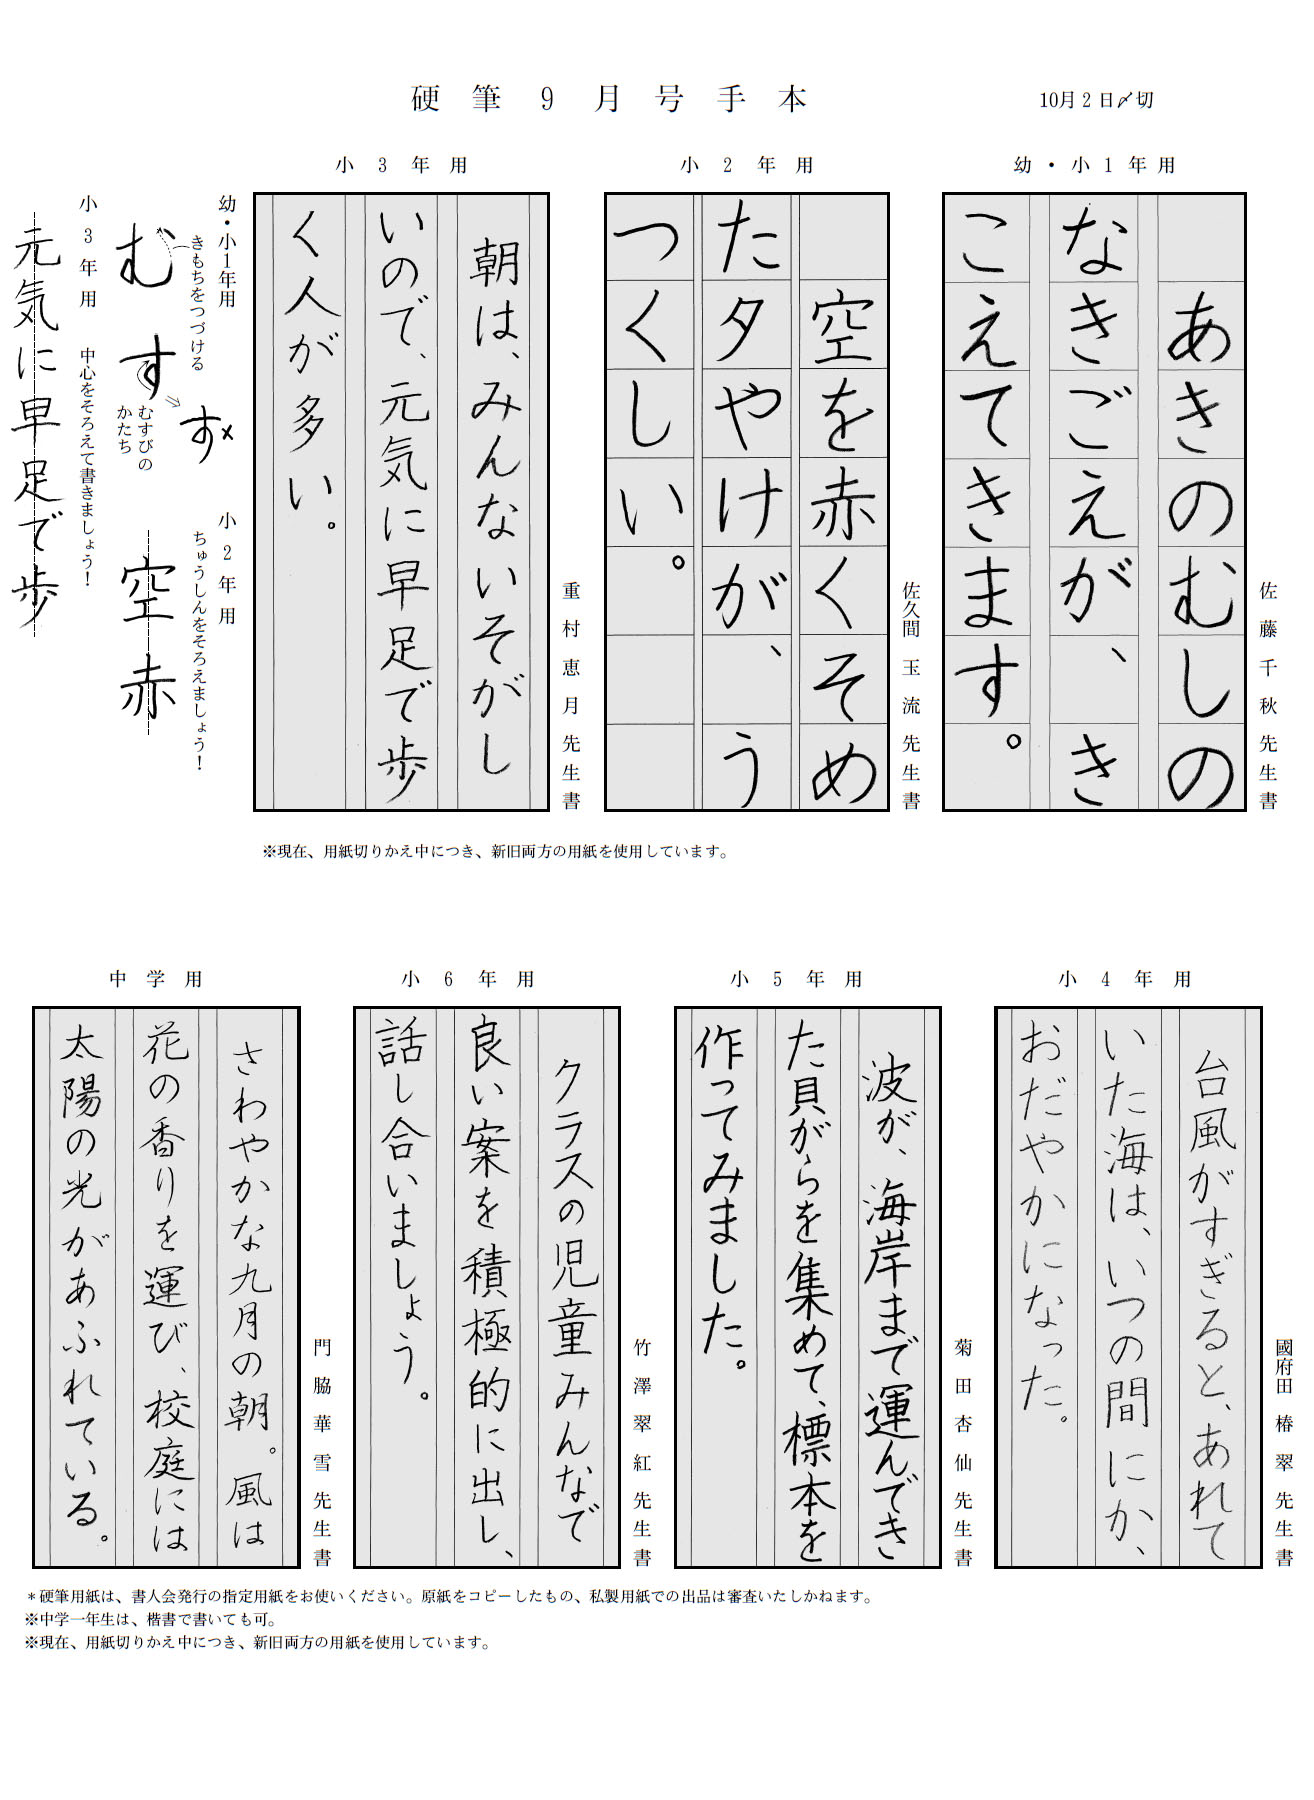 硬筆9月号手本
10月2日〆切
幼・小1年用
あきのむしの
なきごえが、き
こえてきます。
佐藤千秋先生書
小2年用
空を赤くそめ
た夕やけが、う
つくしい。
佐久間玉流先生書
小3年用
朝は、みんないそがし
いので、元気に早足で歩
く人が多い。
重村恵月先生書
幼・小1年用
きもちをつづける
む
す
す×
むすびの
かたち
小2年用
ちゅうしんをそろえましょう!
空赤
小3年用
中心をそろえて書きましょう!
元気に早足で歩
※現在、用紙切りかえ中につき、新旧両方の用紙を使用しています。
小4年用
台風がすぎると、あれて
いた海は、いつの間にか、
おだやかになった。
國府田椿翠先生書
小5年用
波が、海岸まで運んでき
た貝がらを集めて、標本を
作ってみました。
菊田杏仙先生書
小6年用
クラスの児童みんなで
良い案を積極的に出し、
話し合いましょう。
竹澤翠紅先生書
中学用
さわやかな九月の朝。風は
花の香りを運び、校庭には
太陽の光があふれている。
門脇華雪先生書
*硬筆用紙は、書人会発行の指定用紙をお使いください。原紙をコピーしたもの、私製用紙での出品は審査いたしかねます。
※中学一年生は、楷書で書いても可。
※現在、用紙切りかえ中につき、新旧両方の用紙を使用しています。